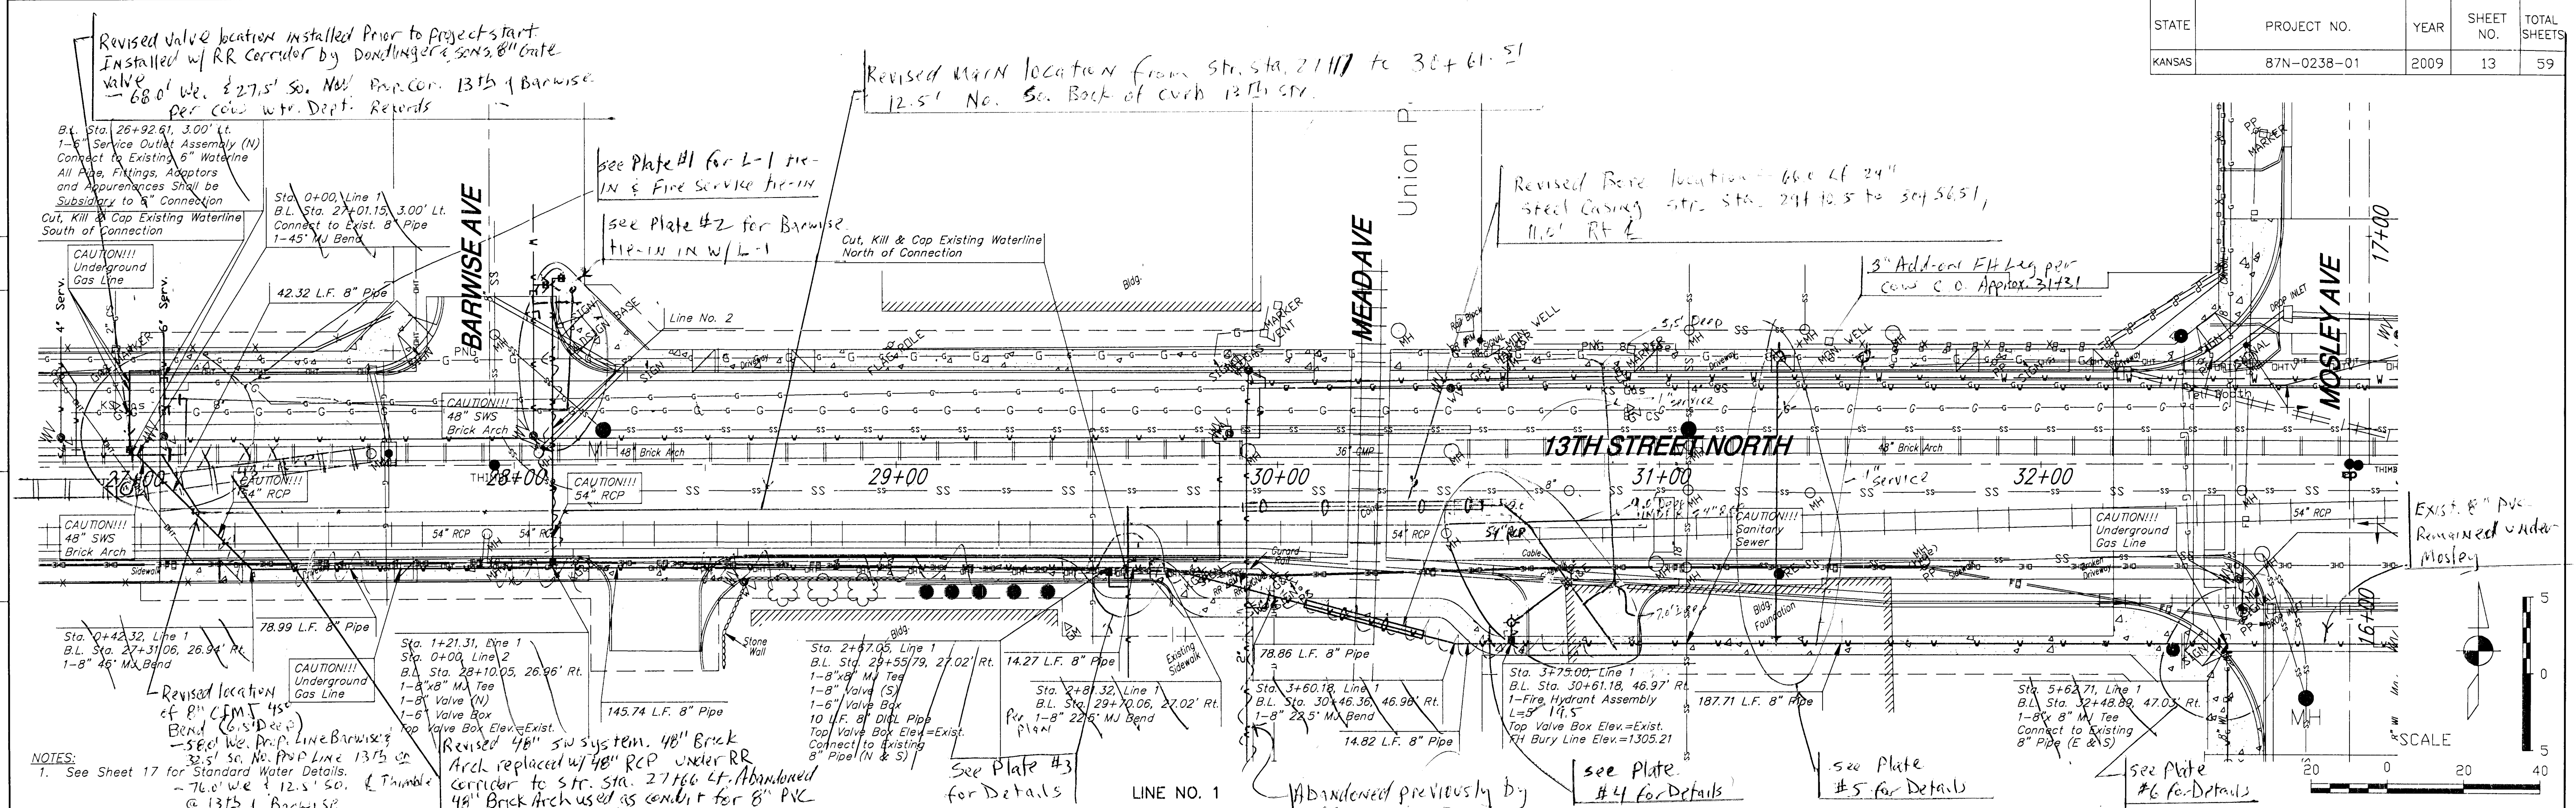 STATE PROJECT NO. YEAR SHEET NO. TOTAL SHEETS
KANSAS 87N-0238-01 2009 13 59
Revised valve location installed Prior to project start.
Installed w/ RR Corridor by Dondlinger & sons. 8" Gate
valve
68.0' We. & 27.5' So. No. Prop. Cor. 13th & Barwise.
per cow wtr. Dept. Records
Revised main location from str. sta.
12.5' No. So. Back of curb 13th str.
B.L. Sta. 26+92.61, 3.00' Lt.
1-6" Service Outlet Assembly (N)
Connect to Existing 6" Waterline
All Pipe, Fittings, Adaptors
and Appurenances Shall be
Subsidiary to 6" Connection
Cut, Kill & Cap Existing Waterline
South of Connection
CAUTION!!!
Underground
Gas Line
Sta. 0+00, Line 1
B.L. Sta. 27+01.15, 3.00' Lt.
Connect to Exist. 8" Pipe
1-45° MJ Bend
42.32 L.F. 8" Pipe
BARWISE AVE
see Plate #1 for L-1 tie-
IN & Fire Service tie-IN
see Plate #2 for Barwise.
tie-IN IN W/ L-1
Cut, Kill & Cap Existing Waterline
North of Connection
Line No. 2
Bldg.
Union P.
MEAD AVE
Revised Bore location - 66.0 LF 24"
Steel Casing str. sta. 29+10.5 to 30+56.51,
11.0' Rt
3" Add-on FH Leg per
cow C.O. Approx. 31+31
MOSLEY AVE
17+00
PP
MARKER
DROP INLET
4" Serv.
6" Serv.
SIGN BASE
FLAG POLE
MARKER
VENT
5.5' Deep
MON. WELL
KS Gas
1" service
CAUTION!!!
48" SWS
Brick Arch
MH 48" Brick Arch
36" CMP
13TH STREET NORTH
48" Brick Arch
THIMB
27+00 28+00 29+00 30+00 31+00 32+00
CAUTION!!!
54" RCP
CAUTION!!!
54" RCP
1" Service
CAUTION!!!
48" SWS
Brick Arch
54" RCP
54" RCP
54" RCP
54" RCP
CAUTION!!!
Sanitary
Sewer
CAUTION!!!
Underground
Gas Line
54" RCP
Exist. 8" PVC
Remained under
Mosley
Sidewalk
Gurard
Rail
Cable
Broken
Driveway
16+00
Sta. 0+42.32, Line 1
B.L. Sta. 27+31.06, 26.94' Rt.
1-8" 45° MJ Bend
78.99 L.F. 8" Pipe
CAUTION!!!
Underground
Gas Line
Sta. 1+21.31, Line 1
Sta. 0+00, Line 2
B.L. Sta. 28+10.05, 26.96' Rt.
1-8"x8" MJ Tee
1-8" Valve (N)
1-6" Valve Box
Top Valve Box Elev.=Exist.
145.74 L.F. 8" Pipe
Stone
Wall
Bldg.
Sta. 2+67.05, Line 1
B.L. Sta. 29+55.79, 27.02' Rt.
1-8"x8" MJ Tee
1-8" Valve (S)
1-6" Valve Box
10 L.F. 8" DICL Pipe
Top Valve Box Elev.=Exist.
Connect to Existing
8" Pipe (N & S)
14.27 L.F. 8" Pipe
Existing
Sidewalk
Sta. 2+81.32, Line 1
B.L. Sta. 29+70.06, 27.02' Rt.
1-8" 22.5° MJ Bend
Per
Plan
78.86 L.F. 8" Pipe
Sta. 3+60.18, Line 1
B.L. Sta. 30+46.36, 46.96' Rt.
1-8" 22.5° MJ Bend
14.82 L.F. 8" Pipe
Sta. 3+75.00, Line 1
B.L. Sta. 30+61.18, 46.97' Rt.
1-Fire Hydrant Assembly
L=5' 19.5
Top Valve Box Elev.=Exist.
FH Bury Line Elev.=1305.21
Bldg.
Foundation
187.71 L.F. 8" Pipe
Sta. 5+62.71, Line 1
B.L. Sta. 32+48.89, 47.03' Rt.
1-8"x 8" MJ Tee
Connect to Existing
8" Pipe (E & S)
MH
SCALE
5 0 5
20 0 20 40
Revised location
of 8" CIMJ 45°
Bend (6.5' Deep)
-58.0' We. Prop. Line Barwise &
32.5' So. No. Prop Line 13th or
- 76.0' We & 12.5' So. Thimble
@ 13th & Barwise
NOTES:
1. See Sheet 17 for Standard Water Details.
Revised 48" SW system. 48" Brick
Arch replaced w/ 48" RCP under RR
corridor to str. sta. 27+66 Lt. Abandoned
48" Brick Arch used as conduit for 8" PVC
see Plate #3
for Details
LINE NO. 1
Abandoned previously by
see Plate
#4 for Details
see Plate
#5 for Details
see Plate
#6 for Details